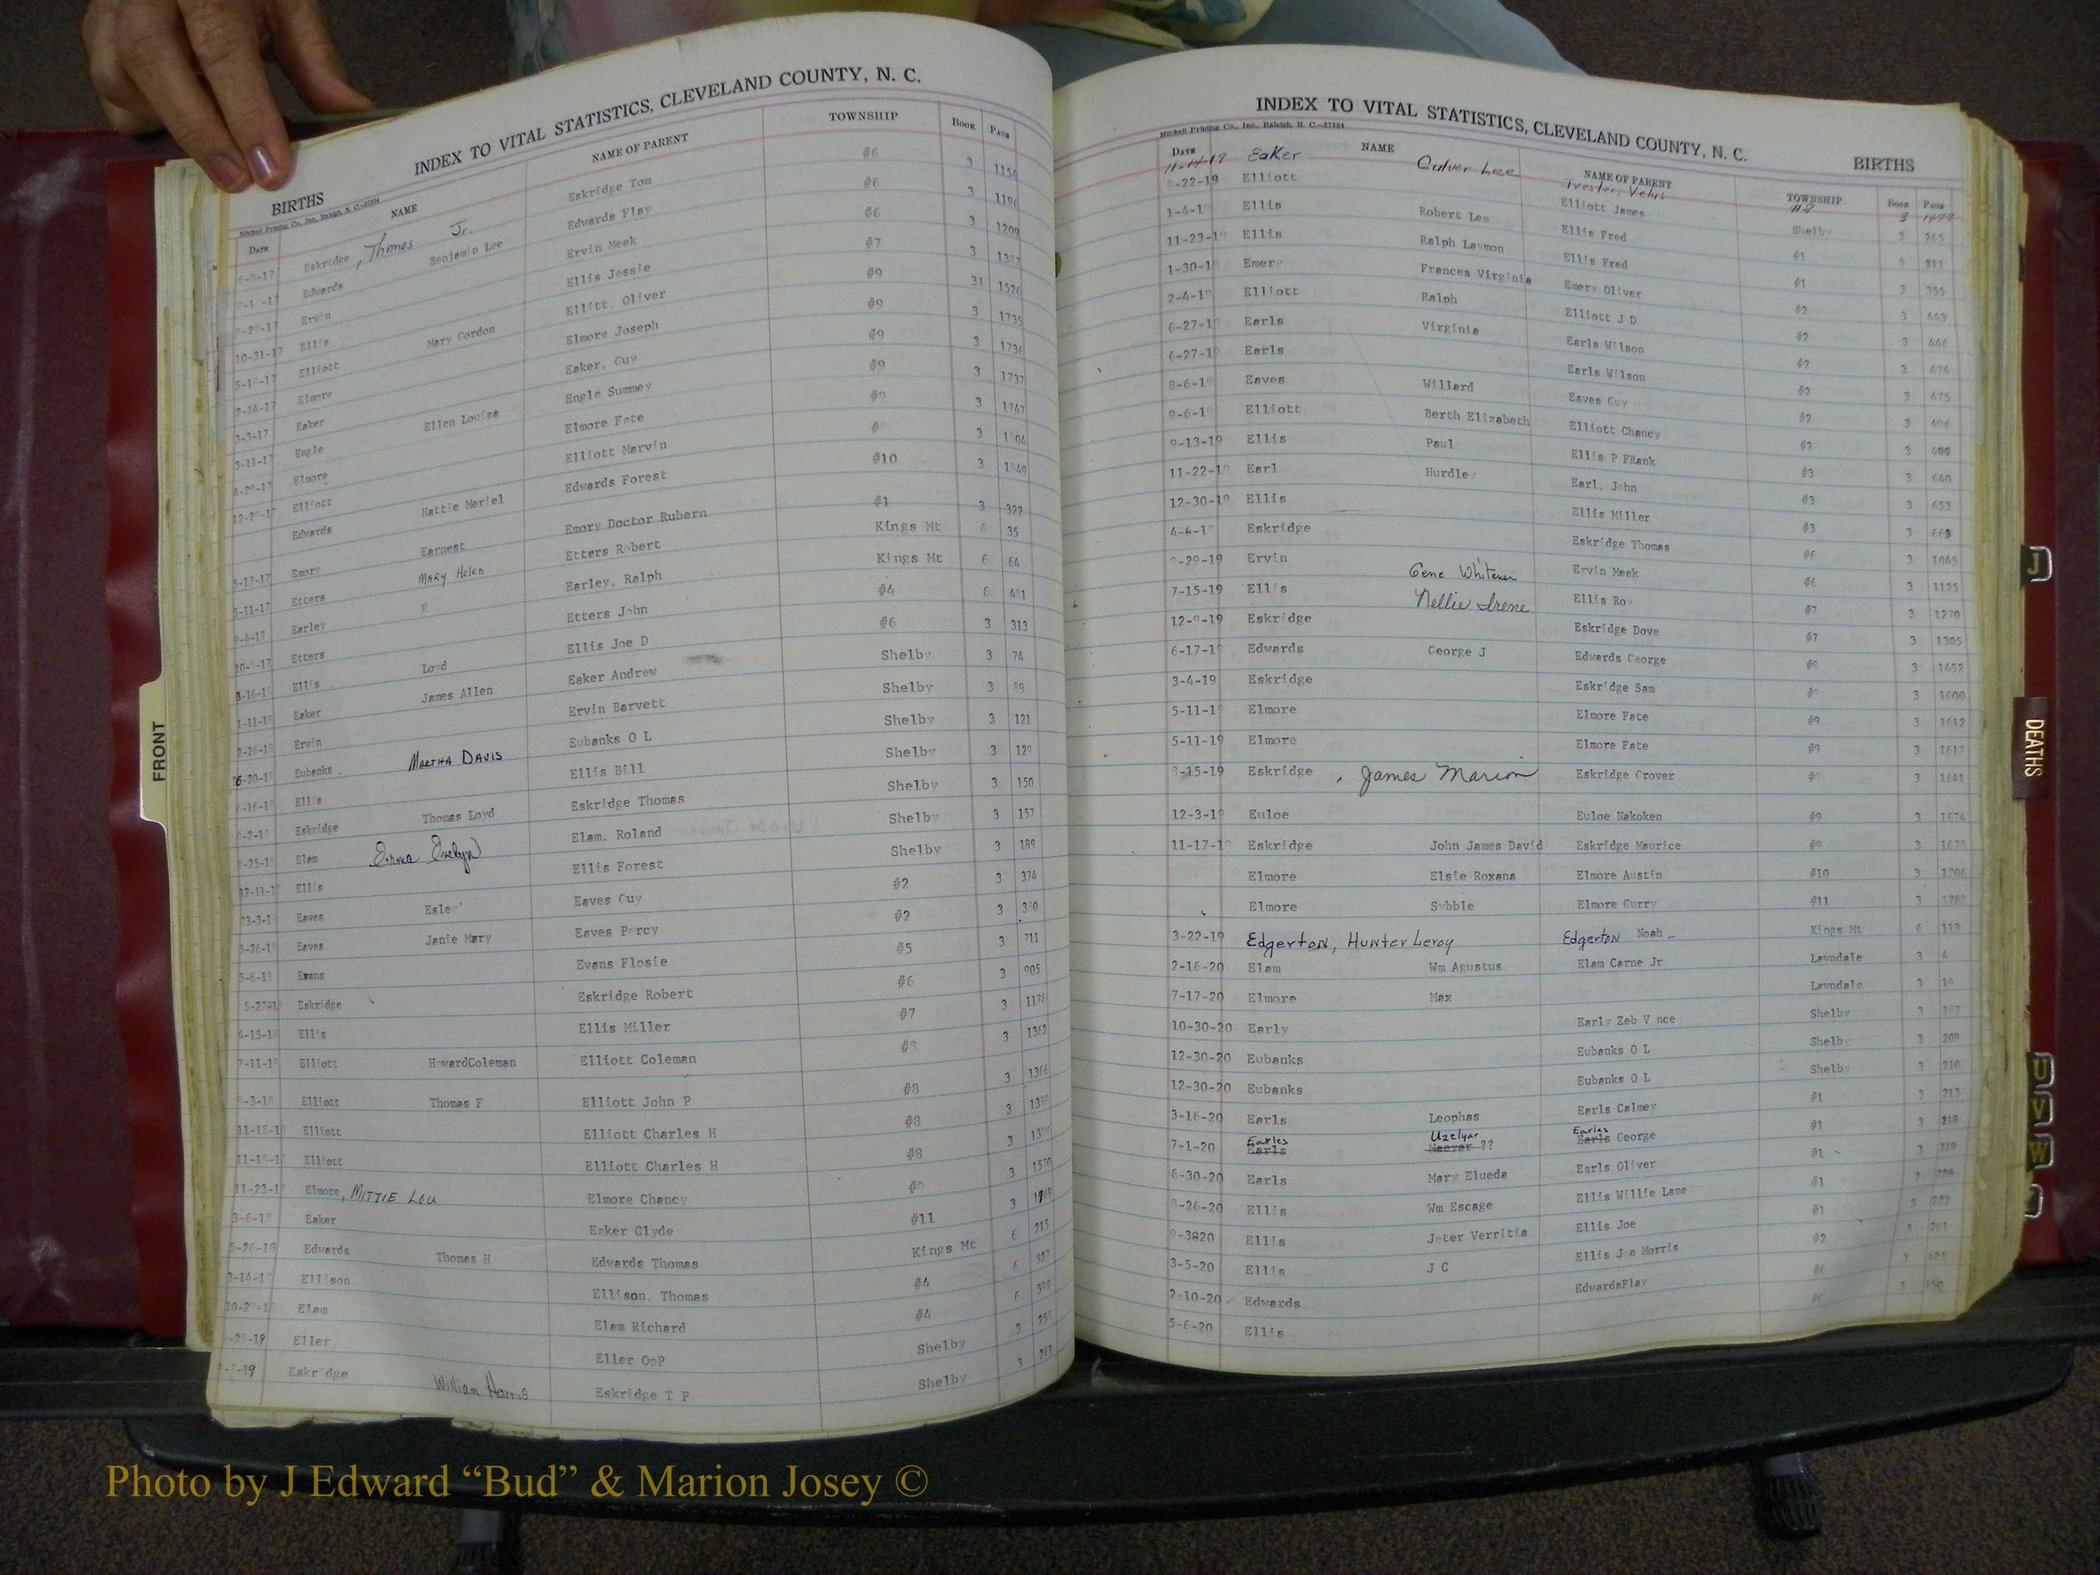 INDEX TO VITAL STATISTICS, CLEVELAND COUNTY, N. C.
BIRTHS
Mitchell Printing Co., Inc., Raleigh, N. C.
DATE NAME NAME OF PARENT TOWNSHIP BOOK PAGE
Eskridge, Thomas Jr. Eskridge Tom #6 3 1154
Edwards Benjamin Lee Edwards Flay #6 3 1196
9-29-17 Ervin Ervin Meek #6 3 1209
10-31-17 Ellis Ellis Jessie #7 3
Elliott Mary Gordon Elliott, Oliver #9 31 1526
2-16-17 Elmore Elmore Joseph #9 3 1735
3-3-17 Eaker Eaker, Guy #9 3 1736
3-11-17 Engle Ellen Louise Engle Summey #9 3 1737
Elmore Elmore Fate #9 3 1747
Elliott Hattie Meriel Elliott Marvin 3
Edwards Edwards Forest #10 3 1849
5-17-17 Emory Earnest Emory Doctor Rubern #1 3 322
5-11-17 Etters MARY Helen Etters Robert Kings Mt 6 35
9-4-17 Earley Earley, Ralph Kings Mt 6 64
Etters Etters John #4 6
Ellis Loyd Ellis Joe D #6 3 313
1-11-18 Eaker James Allen Eaker Andrew Shelby 3 74
2-26-18 Ervin Ervin Barvett Shelby 3 89
6-20-18 Eubanks MARTHA DAVIS Eubanks O L Shelby 3 121
Ellis Ellis Bill Shelby 3
Eskridge Thomas Loyd Eskridge Thomas Shelby 3 150
Elam Erma Evelyn Elam, Roland Shelby 3 157
12-11-18 Ellis Ellis Forest Shelby 3 189
Eaves Esley Eaves Guy #2 3 374
5-26-18 Eaves Janie Mary Eaves Percy #2 3
5-6-18 Evans Evans Flosie #5 3 711
Eskridge Eskridge Robert #6 3 905
4-15-18 Ellis Ellis Miller #7 3 1176
7-11-18 Elliott HowardColeman Elliott Coleman 3 1362
Elliott Thomas F Elliott John P #8 3 1366
11-18-18 Elliott Elliott Charles H #8 3
11-18-18 Elliott Elliott Charles H #8 3
11-23-18 Elmore, MITTIE LOU Elmore Chancy 3 1570
3-6-18 Eaker Eaker Clyde #11 3
5-26-18 Edwards Thomas H Edwards Thomas Kings Mt 6 215
3-14-18 Ellison Ellison, Thomas #4 6 527
Elam Elam Richard #4 6
Eller Eller OpP Shelby 3
Eskridge William Harris Eskridge T P Shelby 3 261
FRONT
INDEX TO VITAL STATISTICS, CLEVELAND COUNTY, N. C.
BIRTHS
Mitchell Printing Co., Inc., Raleigh, N. C.-37304
DATE NAME NAME OF PARENT TOWNSHIP BOOK PAGE
11-14-19 Eaker Culver Lee Ivester, Velus #8 3
Elliott Elliott James Shelby 3 265
1-4-19 Ellis Robert Lee Ellis Fred #1 3 311
11-23-19 Ellis Ralph Laymon Ellis Fred #1 3 355
1-30-19 Emery Frances Virginia Emery Oliver #2 3 443
2-4-19 Elliott Ralph Elliott J D #2 3 446
6-27-19 Earls Virginia Earls Wilson #2 3 474
6-27-19 Earls Earls Wilson #2 3 475
8-6-19 Eaves Willard Eaves Guy #2 3 496
9-6-19 Elliott Berth Elizabeth Elliott Chancy #2 3 499
9-13-19 Ellis Paul Ellis P FRank #3 3 640
11-22-19 Earl Hurdle Earl, John #3 3 653
12-30-19 Ellis Ellis Miller #3 3 668
4-6-19 Eskridge Eskridge Thomas #6 3 1045
9-29-19 Ervin Gene Whitener Ervin Meek #6 3 1125
7-15-19 Ellis Nellie Irene Ellis Roy #7 3 1270
12-9-19 Eskridge Eskridge Dove #7 3 1305
6-17-19 Edwards George J Edwards George #8 3 1452
3-4-19 Eskridge Eskridge Sam 3 1600
5-11-19 Elmore Elmore Fate #9 3 1612
5-11-19 Elmore Elmore Fate #9 3 1617
8-15-19 Eskridge, James Marion Eskridge Grover 3 1641
12-3-19 Euloe Euloe Nakoken #9 3 1674
11-17-19 Eskridge John James David Eskridge Maurice #9 3 1678
Elmore Elsie Roxana Elmore Austin #10 3
Elmore Sybble Elmore Curry #11 3
3-22-19 Edgerton, Hunter Leroy Edgerton Noah Kings Mt 6 113
2-16-20 Elam Wm Agustus Elam Carne Jr Lawndale 3 4
7-17-20 Elmore Max Lawndale 3
10-30-20 Early Early Zeb Vance Shelby 3
12-30-20 Eubanks Eubanks O L Shelby 3 209
12-30-20 Eubanks Eubanks O L Shelby 3 210
3-16-20 Earls Leophas Earls Calmey #1 3 213
7-1-20 Earles Earls Uzelyar ?? Earles George #1 3 218
6-30-20 Earls Mary Elueda Earls Oliver #1 3 219
8-26-20 Ellis Wm Escage Ellis Willie Lane #1 3
9-3020 Ellis Jeter Verritia Ellis Joe #1 3 222
3-5-20 Ellis J C Ellis Joe Morris #2 3 261
2-10-20 Edwards EdwardsFlay #6 3
5-6-20 Ellis #6 3
J
DEATHS
U
V
W
Photo by J Edward “Bud” & Marion Josey ©